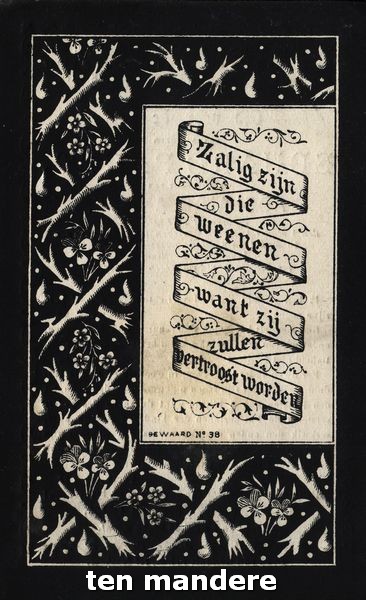 Zalig zijn
die
weenen
want zij
zullen
vertroost worden
GEWAARD Nº 38
ten mandere